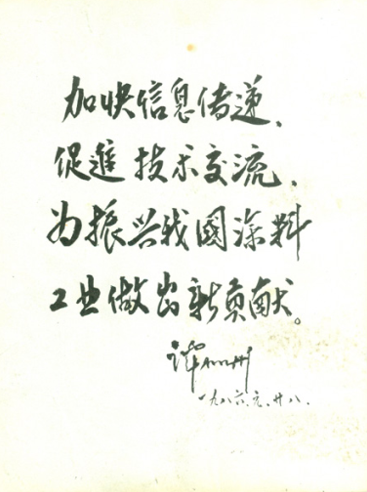 加快信息传递、
促進技术交流、
为振兴我國涂料
工业做出新贡献。
一九八六.元.廿八.